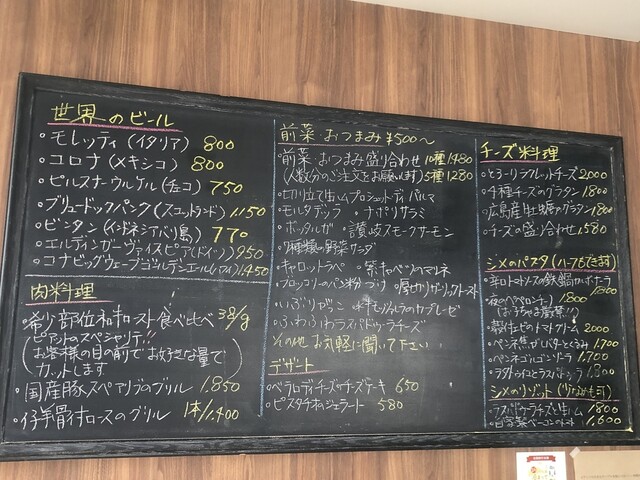 世界のビール
・モレッティ(イタリア) 800
・コロナ(メキシコ) 800
・ピルスナーウルケル(チェコ) 750
・ブリュードックパンク(スコットランド) 1.150
・ビンタン(インドネシアバリ島) 770
・エルディンガーヴァイスビア(ドイツ) 950
・コナビッグウェーブゴールデンエール(ハワイ) 1.450
肉料理
・希少部位和牛ロースト食べ比べ 38/g
ピアットのスペシャリテ!!
お客様の目の前でお好きな量で
カットします
・国産豚スペアリブのグリル 1.850
・仔羊骨付ロースのグリル 1本/1.400
前菜 おつまみ ¥500〜
・前菜 おつまみ盛り合わせ 10種 1480
(人数分のご注文をお願いします) 5種 1280
・切り立て生ハムプロシュートディパルマ
・モルタデッラ ・ナポリサラミ
・ボッタルガ ・讃岐スモークサーモン
種類の野菜サラダ
・キャロットラペ ・紫キャベツのマリネ
・ブロッコリーのパン粉づけ ・厚切りガーリックトースト
・いぶりがっこ ・水牛モッツァレラのカプレーゼ
・ふわふわラスパドゥーラチーズ
その他 お気軽に聞いて下さい
デザート
・ベラロディチーズのチーズケーキ 650
・ピスタチオのジェラート 580
チーズ料理
・とろーりラクレットチーズ 2.000
・4種チーズのグラタン 1.800
・広島産牡蠣のグラタン 1.800
・チーズの盛り合わせ 1.580
シメのパスタ(ハーフもできます)
・辛口トマトソースの鉄鍋カルボナーラ
・夜のペペロンチーノ 1.800
・殻付エビのトマトクリーム 2.000
・ペンネ焦がしバターとくるみ 1.700
・ペンネゴルゴンゾーラ 1.700
シメのリゾット
・ラスパドゥーラチーズと生ハム 1.800
・自家製ベーコンのトマト 1.600